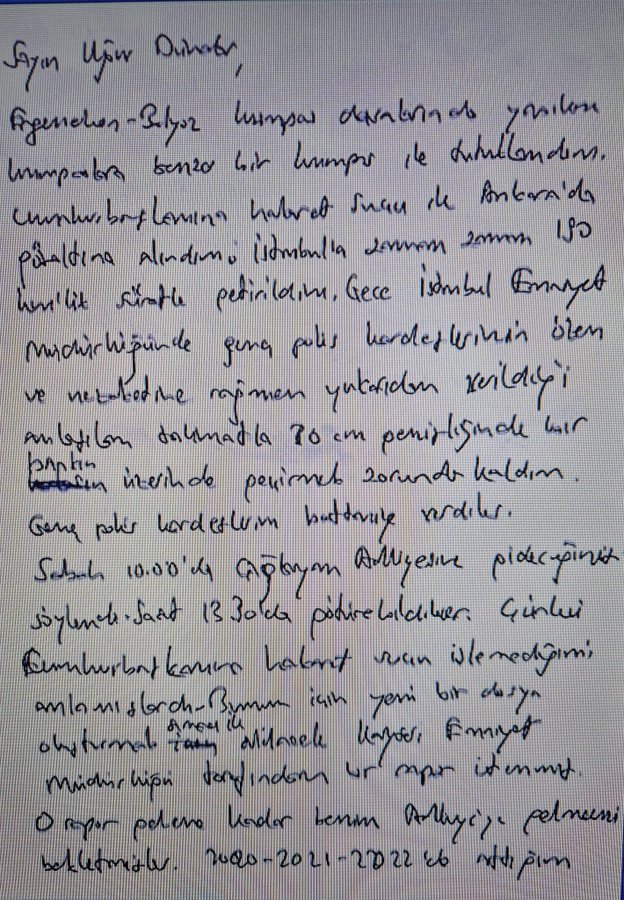 Sayın Uğur Dündar,
Ergenekon-Balyoz kumpas davalarında yapılan
kumpaslara benzer bir kumpas ile tutuklandım.
Cumhurbaşkanına hakaret suçu ile Ankara'da
gözaltına alındım, İstanbul'a zaman zaman 190
km'lik süratle getirildim. Gece İstanbul Emniyet
Müdürlüğünde genç polis kardeşlerimin özen
ve nezaketine rağmen yukarıdan verildiği
anlatılan talimatla 70 cm genişliğinde bir
bankın üzerinde geçirmek zorunda kaldım.
Genç polis kardeşlerim battaniye verdiler.
Sabah 10.00'da Çağlayan Adliyesine gideceğimiz
söylendi. Saat 13.30'da götürebildiler. Çünkü
Cumhurbaşkanına hakaret suçu işlemediğimi
anlamışlardı. Bunun için yeni bir dosya
oluşturmak amacı ile Kayseri Emniyet
Müdürlüğü tarafından bir rapor istenmiş.
O rapor gelene kadar benim Adliyeye gelmemi
bekletmişler. 2020-2021-2022'de attığım